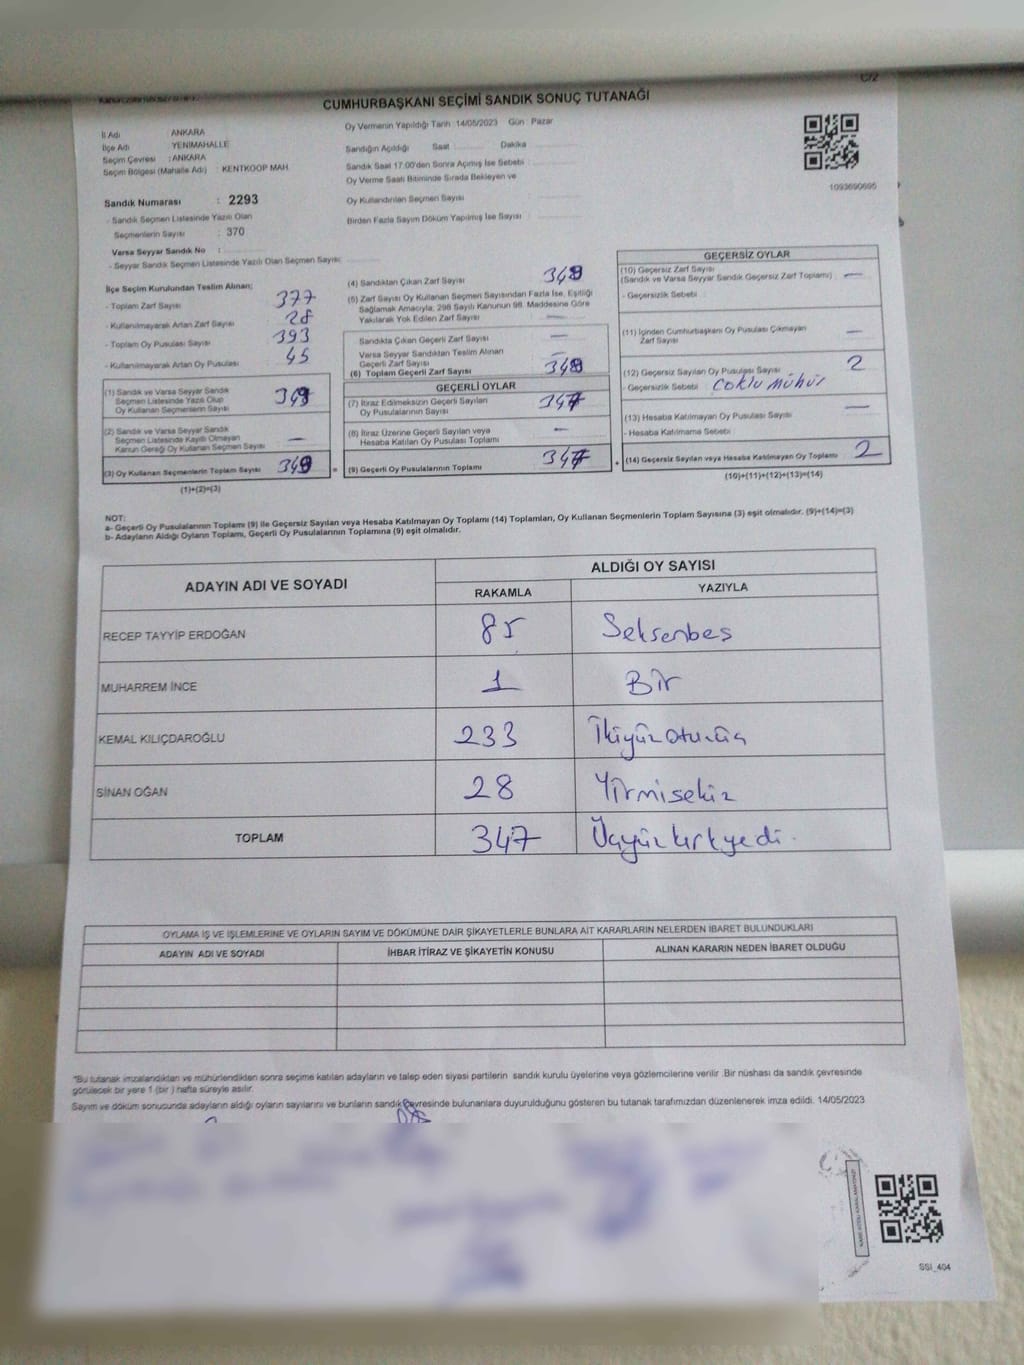 C/2
CUMHURBAŞKANI SEÇİMİ SANDIK SONUÇ TUTANAĞI
İl Adı ANKARA
İlçe Adı YENİMAHALLE
Seçim Çevresi : ANKARA
Seçim Bölgesi (Mahalle Adı) : KENTKOOP MAH.
Sandık Numarası : 2293
- Sandık Seçmen Listesinde Yazılı Olan
Seçmenlerin Sayısı : 370
Varsa Seyyar Sandık No :
- Seyyar Sandık Seçmen Listesinde Yazılı Olan Seçmen Sayısı:
Oy Vermenin Yapıldığı Tarih :14/05/2023 Gün : Pazar
Sandığın Açıldığı Saat Dakika
Sandık Saat 17.00'den Sonra Açılmış İse Sebebi :
Oy Verme Saati Bitiminde Sırada Bekleyen ve
Oy Kullandırılan Seçmen Sayısı :
Birden Fazla Sayım Döküm Yapılmış İse Sayısı :
1093690695
İlçe Seçim Kurulundan Teslim Alınan;
- Toplam Zarf Sayısı 377
- Kullanılmayarak Artan Zarf Sayısı 28
- Toplam Oy Pusulası Sayısı 393
- Kullanılmayarak Artan Oy Pusulası 45
(1) Sandık ve Varsa Seyyar Sandık
Seçmen Listesinde Yazılı Olup
Oy Kullanan Seçmenlerin Sayısı 349
(2) Sandık ve Varsa Seyyar Sandık
Seçmen Listesinde Kayıtlı Olmayan
Kanun Gereği Oy Kullanan Seçmen Sayısı —
(3) Oy Kullanan Seçmenlerin Toplam Sayısı 349
(1)+(2)=(3)
=
(4) Sandıktan Çıkan Zarf Sayısı 349
(5) Zarf Sayısı Oy Kullanan Seçmen Sayısından Fazla İse, Eşitliği
Sağlamak Amacıyla; 298 Sayılı Kanunun 98. Maddesine Göre
Yakılarak Yok Edilen Zarf Sayısı —
Sandıkta Çıkan Geçerli Zarf Sayısı —
Varsa Seyyar Sandıktan Teslim Alınan
Geçerli Zarf Sayısı —
(6) Toplam Geçerli Zarf Sayısı 349
GEÇERLİ OYLAR
(7) İtiraz Edilmeksizin Geçerli Sayılan
Oy Pusulalarının Sayısı 347
(8) İtiraz Üzerine Geçerli Sayılan veya
Hesaba Katılan Oy Pusulası Toplamı —
(9) Geçerli Oy Pusulalarının Toplamı 347
+
GEÇERSİZ OYLAR
(10) Geçersiz Zarf Sayısı
(Sandık ve Varsa Seyyar Sandık Geçersiz Zarf Toplamı) —
- Geçersizlik Sebebi :
(11) İçinden Cumhurbaşkanı Oy Pusulası Çıkmayan
Zarf Sayısı —
(12) Geçersiz Sayılan Oy Pusulası Sayısı 2
- Geçersizlik Sebebi : Çoklu mühür
(13) Hesaba Katılmayan Oy Pusulası Sayısı —
- Hesaba Katılmama Sebebi :
(14) Geçersiz Sayılan veya Hesaba Katılmayan Oy Toplamı 2
(10)+(11)+(12)+(13)=(14)
NOT:
a- Geçerli Oy Pusulalarının Toplamı (9) ile Geçersiz Sayılan veya Hesaba Katılmayan Oy Toplamı (14) Toplamları, Oy Kullanan Seçmenlerin Toplam Sayısına (3) eşit olmalıdır. (9)+(14)=(3)
b- Adayların Aldığı Oyların Toplamı, Geçerli Oy Pusulalarının Toplamına (9) eşit olmalıdır.
ADAYIN ADI VE SOYADI ALDIĞI OY SAYISI
RAKAMLA YAZIYLA
RECEP TAYYİP ERDOĞAN 85 Seksenbeş
MUHARREM İNCE 1 Bir
KEMAL KILIÇDAROĞLU 233 İkiyüzotuzüç
SİNAN OĞAN 28 Yirmisekiz
TOPLAM 347 Üçyüzkırkyedi.
OYLAMA İŞ VE İŞLEMLERİNE VE OYLARIN SAYIM VE DÖKÜMÜNE DAİR ŞİKAYETLERLE BUNLARA AİT KARARLARIN NELERDEN İBARET BULUNDUKLARI
ADAYIN ADI VE SOYADI İHBAR İTİRAZ VE ŞİKAYETİN KONUSU ALINAN KARARIN NEDEN İBARET OLDUĞU
"Bu tutanak imzalandıktan ve mühürlendikten sonra seçime katılan adayların ve talep eden siyasi partilerin sandık kurulu üyelerine veya gözlemcilerine verilir .Bir nüshası da sandık çevresinde
görülecek bir yere 1 (bir ) hafta süreyle asılır.
Sayım ve döküm sonucunda adayların aldığı oyların sayılarını ve bunların sandık çevresinde bulunanlara duyurulduğunu gösteren bu tutanak tarafımızdan düzenlenerek imza edildi. 14/05/2023
SSİ_404